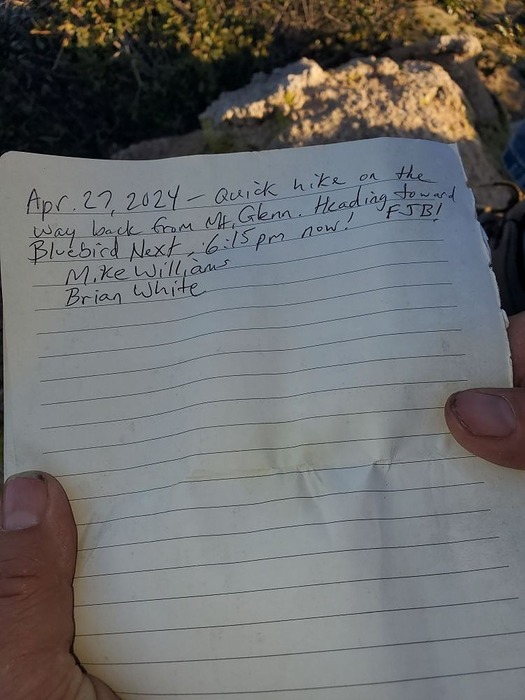 Apr. 27, 2024 - Quick hike on the
way back from Mt. Glenn. Heading toward
Bluebird Next. 6:15 pm now! FJB!
Mike Williams
Brian White